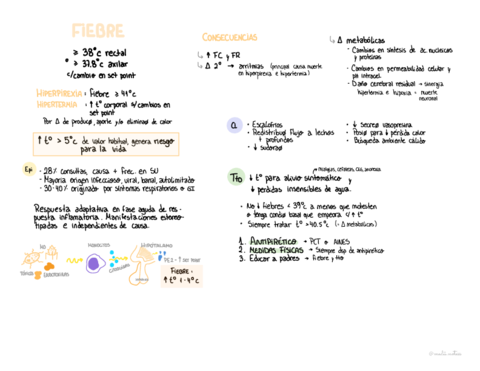 FIEBRE
≥ 38°c rectal
° ≥ 37.8°c axilar
c/cambio en set point
HIPERPIREXIA: Fiebre ≥ 41°c
HIPERTERMIA: ↑ t° corporal s/cambios en
set point
Por Δ de produccº, aporte y/o eliminacº de calor
↑ t° > 5°c de valor habitual, genera riesgo
para la vida
Epi
- 28% consultas, causa + frec. en SU
- Mayoría origen infeccioso, viral, banal, autolimitado
- 30-40% originado por síntomas respiratorios o GI
Respuesta adaptativa en fase aguda de res-
puesta inflamatoria. Manifestaciones estereo-
tipadas e independientes de causa.
MO
MONOCITOS
HIPOTALAMO
CITOQUINAS
TOXINAS
FIEBRE:
↑ t° 1-4°c
CONSECUENCIAS
↳ ↑ FC y FR
↳ Δ 2° → arritmias (principal causa muerte
en hiperpirexia e hipertermia)
↳ Δ metabólicas
• Cambios en síntesis de ac. nucleicos
y proteínas
• Cambios en permeabilidad celular y
pH intracel.
• Daño cerebral residual → sinergia
hipertermia e hipoxia = muerte
neuronal
Q
• Escalofríos
• Redistribuº flujo a lechos
+ profundos
• ↓ sudoraº
• ↓ secreº vasopresina
• Posiº para ↓ pérdida calor
• Búsqueda ambiente cálido
Tto
↓ t° para alivio sintomático y
↓ pérdidas insensibles de agua.
• No ↓ fiebres < 39°c a menos que molesten
o tenga condº basal que empeora c/ ↑ t°
• Siempre tratar t° > 40.5°c (·Δ metabólicas)
1. ANTIPIRÉTICO → PCT o AINES
2. MEDIDAS FÍSICAS → Siempre dsp de antipirético
3. Educar a padres → Fiebre y tto